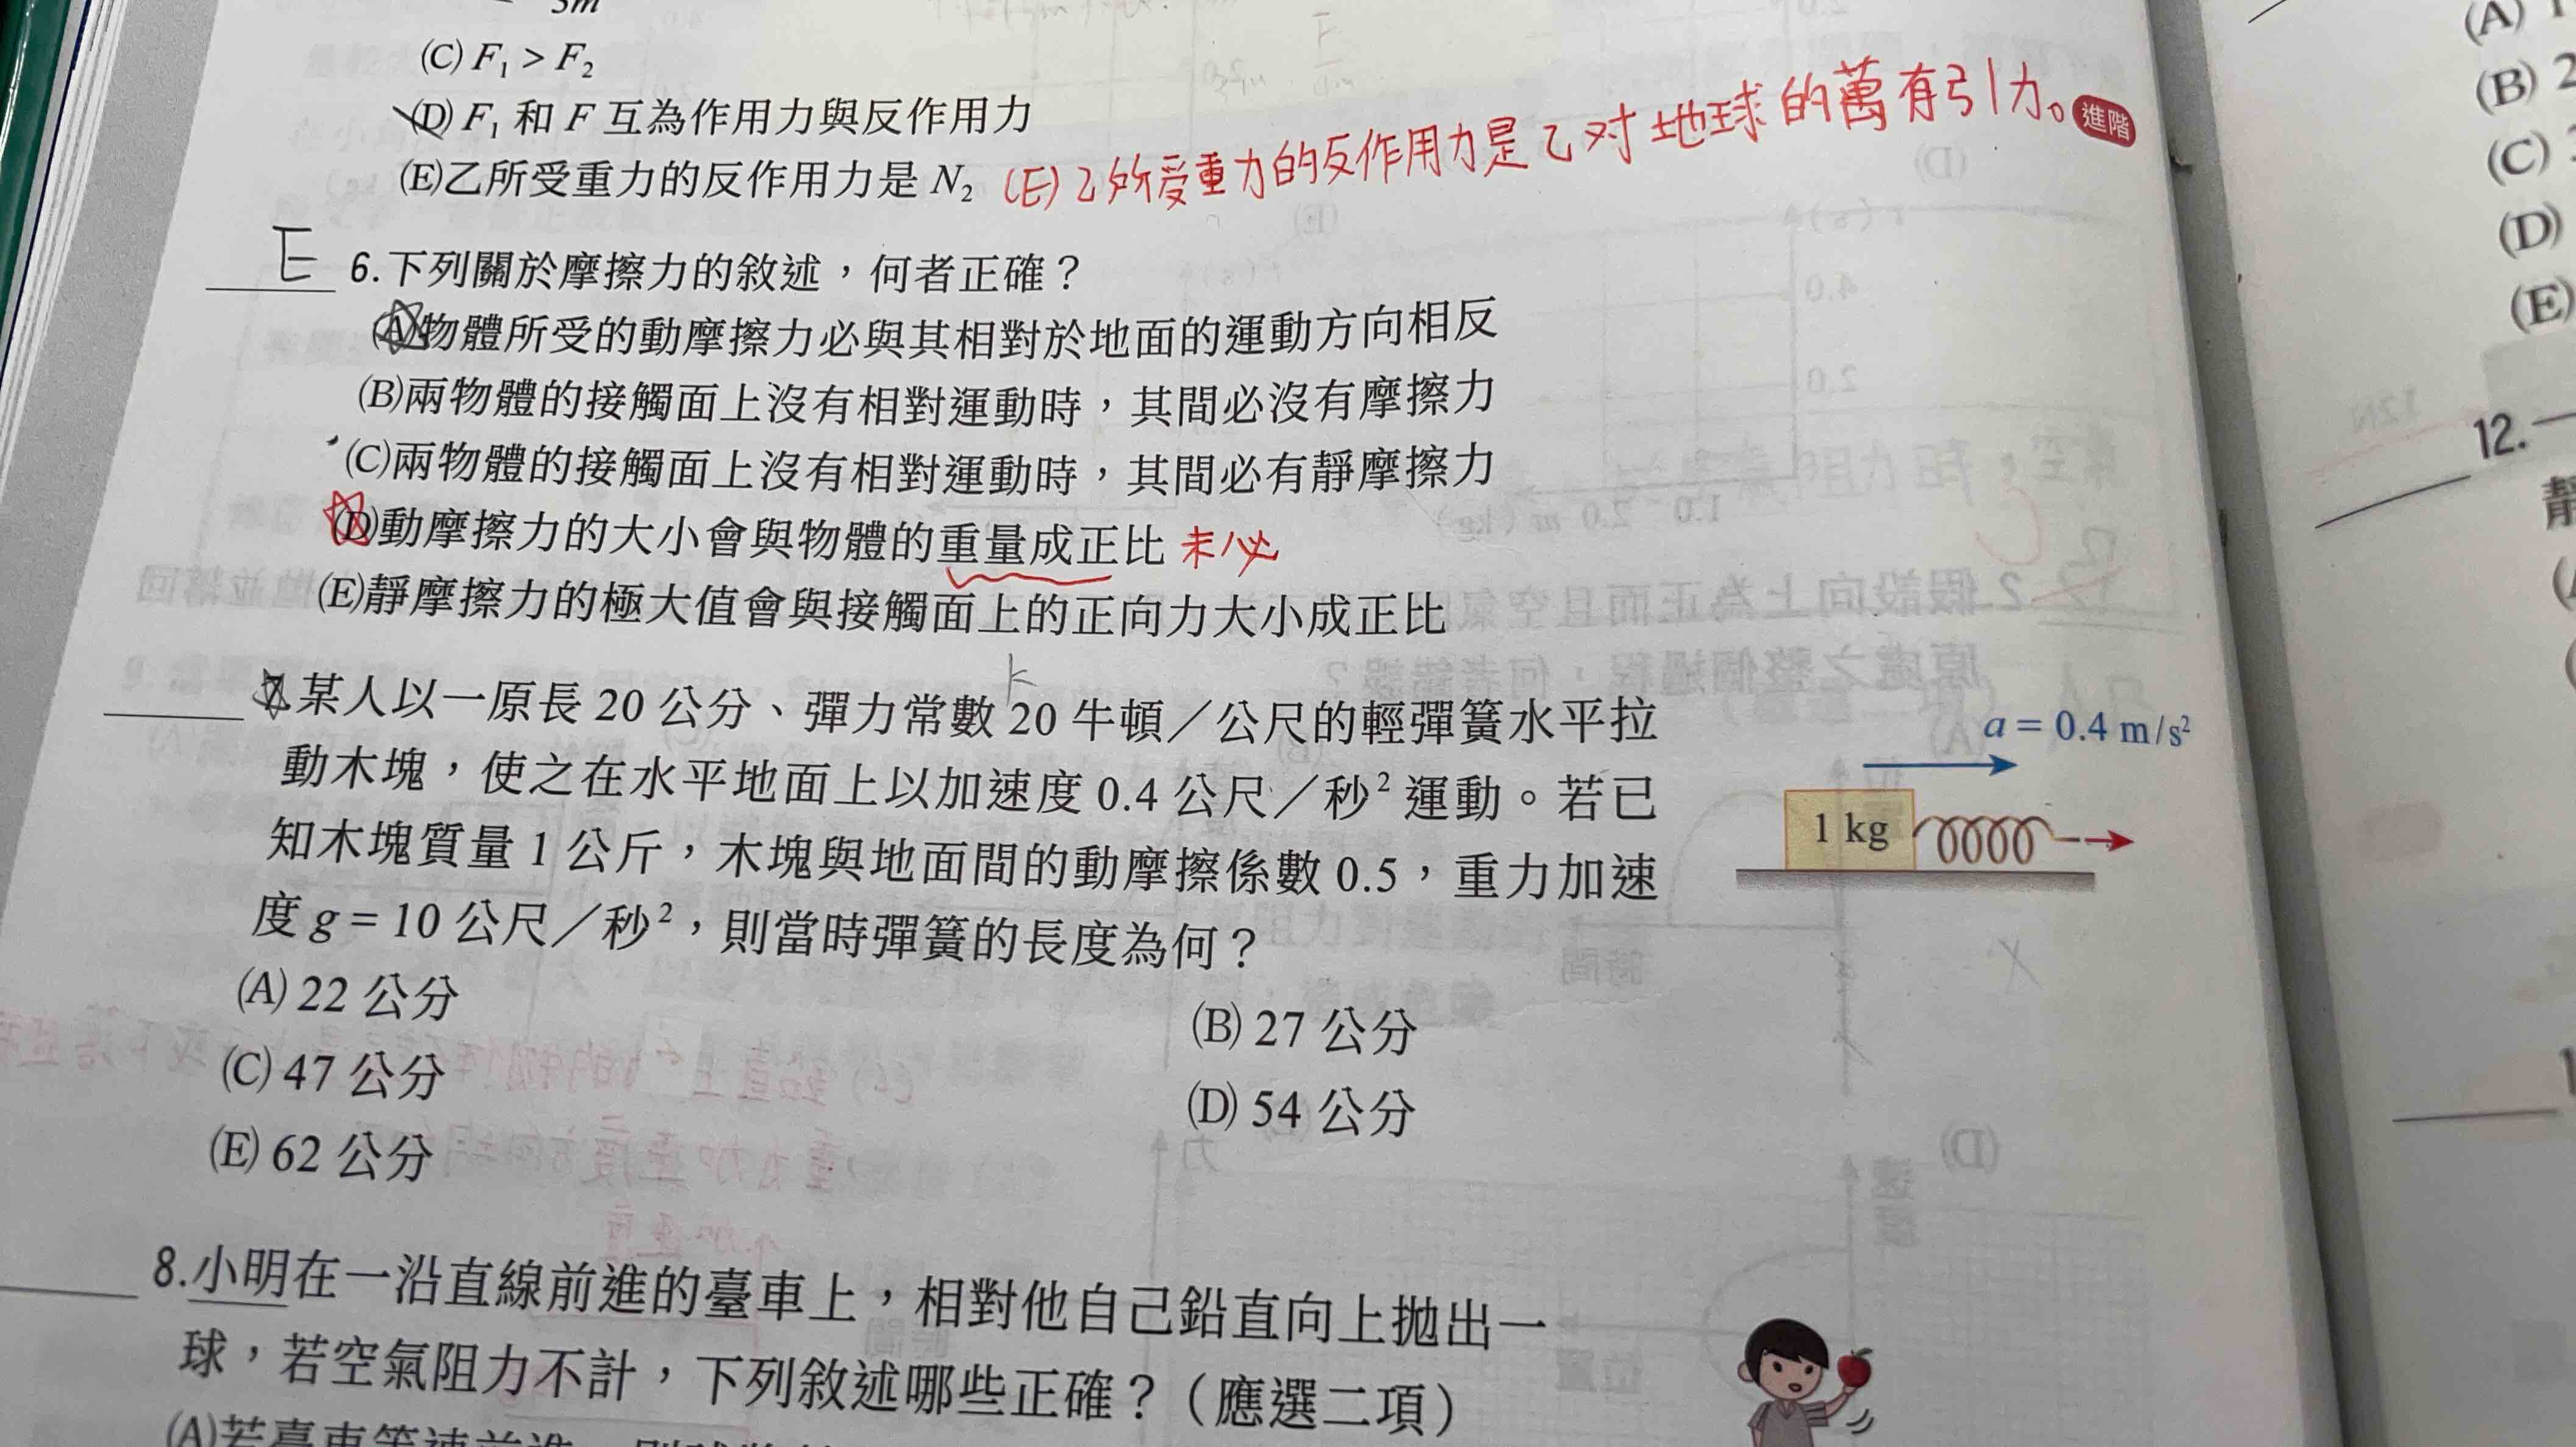 3m
(C) F₁ > F₂
(D) F₁ 和 F 互為作用力與反作用力
(E)乙所受重力的反作用力是 N₂ (E)乙所受重力的反作用力是乙对地球的萬有引力。 進階
E 6.下列關於摩擦力的敘述，何者正確？
(A)物體所受的動摩擦力必與其相對於地面的運動方向相反
(B)兩物體的接觸面上沒有相對運動時，其間必沒有摩擦力
(C)兩物體的接觸面上沒有相對運動時，其間必有靜摩擦力
(D)動摩擦力的大小會與物體的重量成正比 未必
(E)靜摩擦力的極大值會與接觸面上的正向力大小成正比
k
7.某人以一原長 20 公分、彈力常數 20 牛頓／公尺的輕彈簧水平拉
動木塊，使之在水平地面上以加速度 0.4 公尺／秒² 運動。若已
知木塊質量 1 公斤，木塊與地面間的動摩擦係數 0.5，重力加速
度 g = 10 公尺／秒²，則當時彈簧的長度為何？
a = 0.4 m/s²
1 kg
(A) 22 公分
(B) 27 公分
(C) 47 公分
(D) 54 公分
(E) 62 公分
8.小明在一沿直線前進的臺車上，相對他自己鉛直向上拋出一
球，若空氣阻力不計，下列敘述哪些正確？（應選二項）
(A)若臺車等速前進
(A) 1
(B) 2
(C)
(D)
(E)
12.一
靜